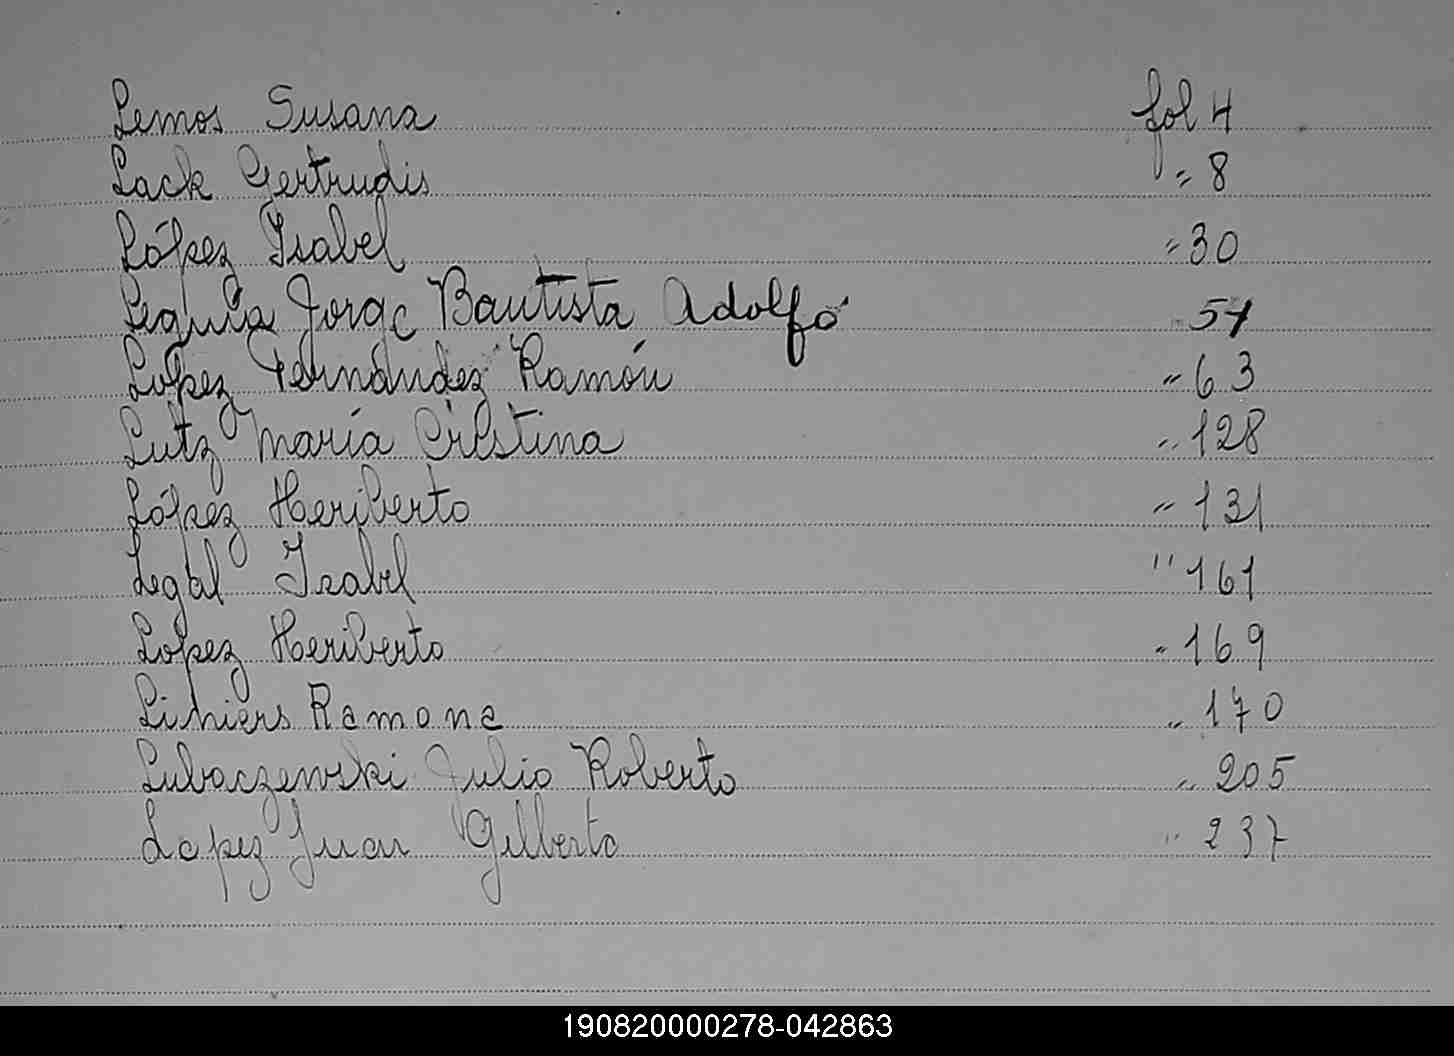 Lemos Susana fol 4
Lack Gertrudis " 8
López Isabel " 30
Leguía Jorge Bautista Adolfo " 51
López Fernández Ramón " 63
Lutz María Cristina " 128
López Heriberto " 131
Legal Isabel " 161
Lopez Heriberto " 169
Liniers Ramona " 170
Lubaczewski Julio Roberto " 205
Lopez Juan Gilberto " 237
190820000278-042863